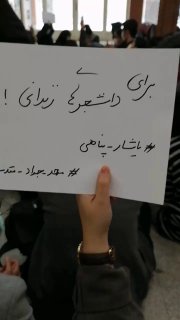 برای
دانشجوهای زندانی!
#یاشار_پناهی
#محمدجواد_